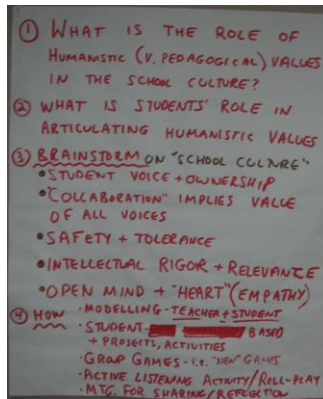 ① WHAT IS THE ROLE OF
HUMANISTIC (V. PEDAGOGICAL) VALUES
IN THE SCHOOL CULTURE?
② WHAT IS STUDENTS' ROLE IN
ARTICULATING HUMANISTIC VALUES
③ BRAINSTORM ON "SCHOOL CULTURE"
• STUDENT VOICE + OWNERSHIP
• "COLLABORATION" IMPLIES VALUE
OF ALL VOICES
• SAFETY + TOLERANCE
• INTELLECTUAL RIGOR + RELEVANCE
• OPEN MIND + "HEART" (EMPATHY)
④ HOW • MODELLING - TEACHER + STUDENT
• STUDENT- BASED
+ PROJECTS, ACTIVITIES
• GROUP GAMES - i.e. "NEW" GAMES
• ACTIVE LISTENING ACTIVITY/ROLL-PLAY
• MTG. FOR SHARING/REFLECTION